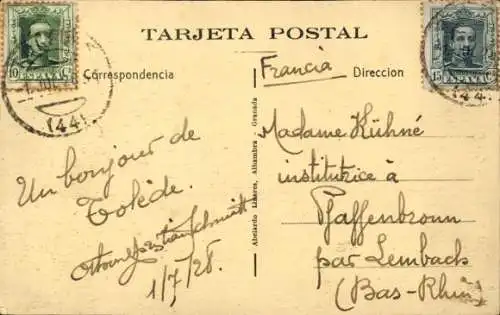 TARJETA POSTAL
Correspondencia
Francia
Direccion
10 ESPAÑA C.
15 ESPAÑA C.
(44)
(44)
Un bonjour de
Tolède.
1/7/28.
Abelardo Linares, Alhambra Granada
Madame Kühné
institutrice à
Pfaffenbronn
par Lembach
(Bas-Rhin)